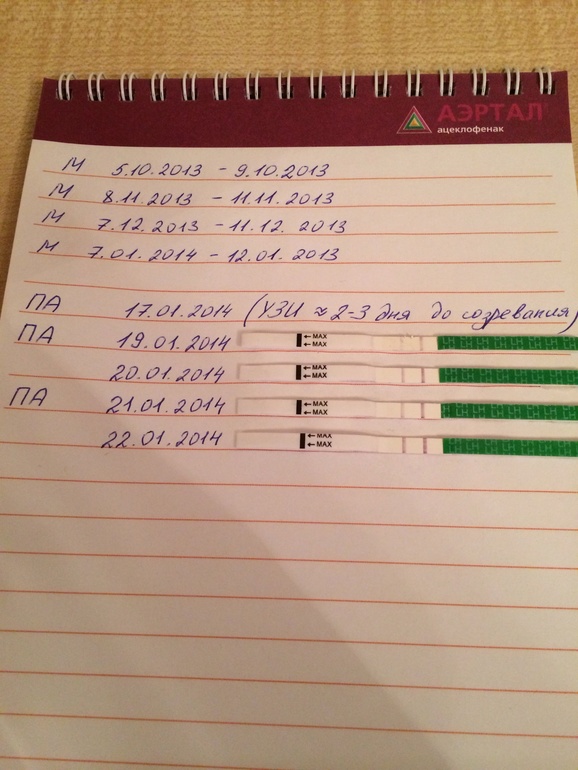 АЭРТАЛ®
ацеклофенак
М 5.10.2013 - 9.10.2013
М 8.11.2013 - 11.11.2013
М 7.12.2013 - 11.12.2013
М 7.01.2014 - 12.01.2013
ПА 17.01.2014 (УЗИ ≈ 2-3 дня до созревания)
ПА 19.01.2014 ←MAX
←MAX
20.01.2014 ←MAX
←MAX
ПА 21.01.2014 ←MAX
←MAX
22.01.2014 ←MAX
←MAX